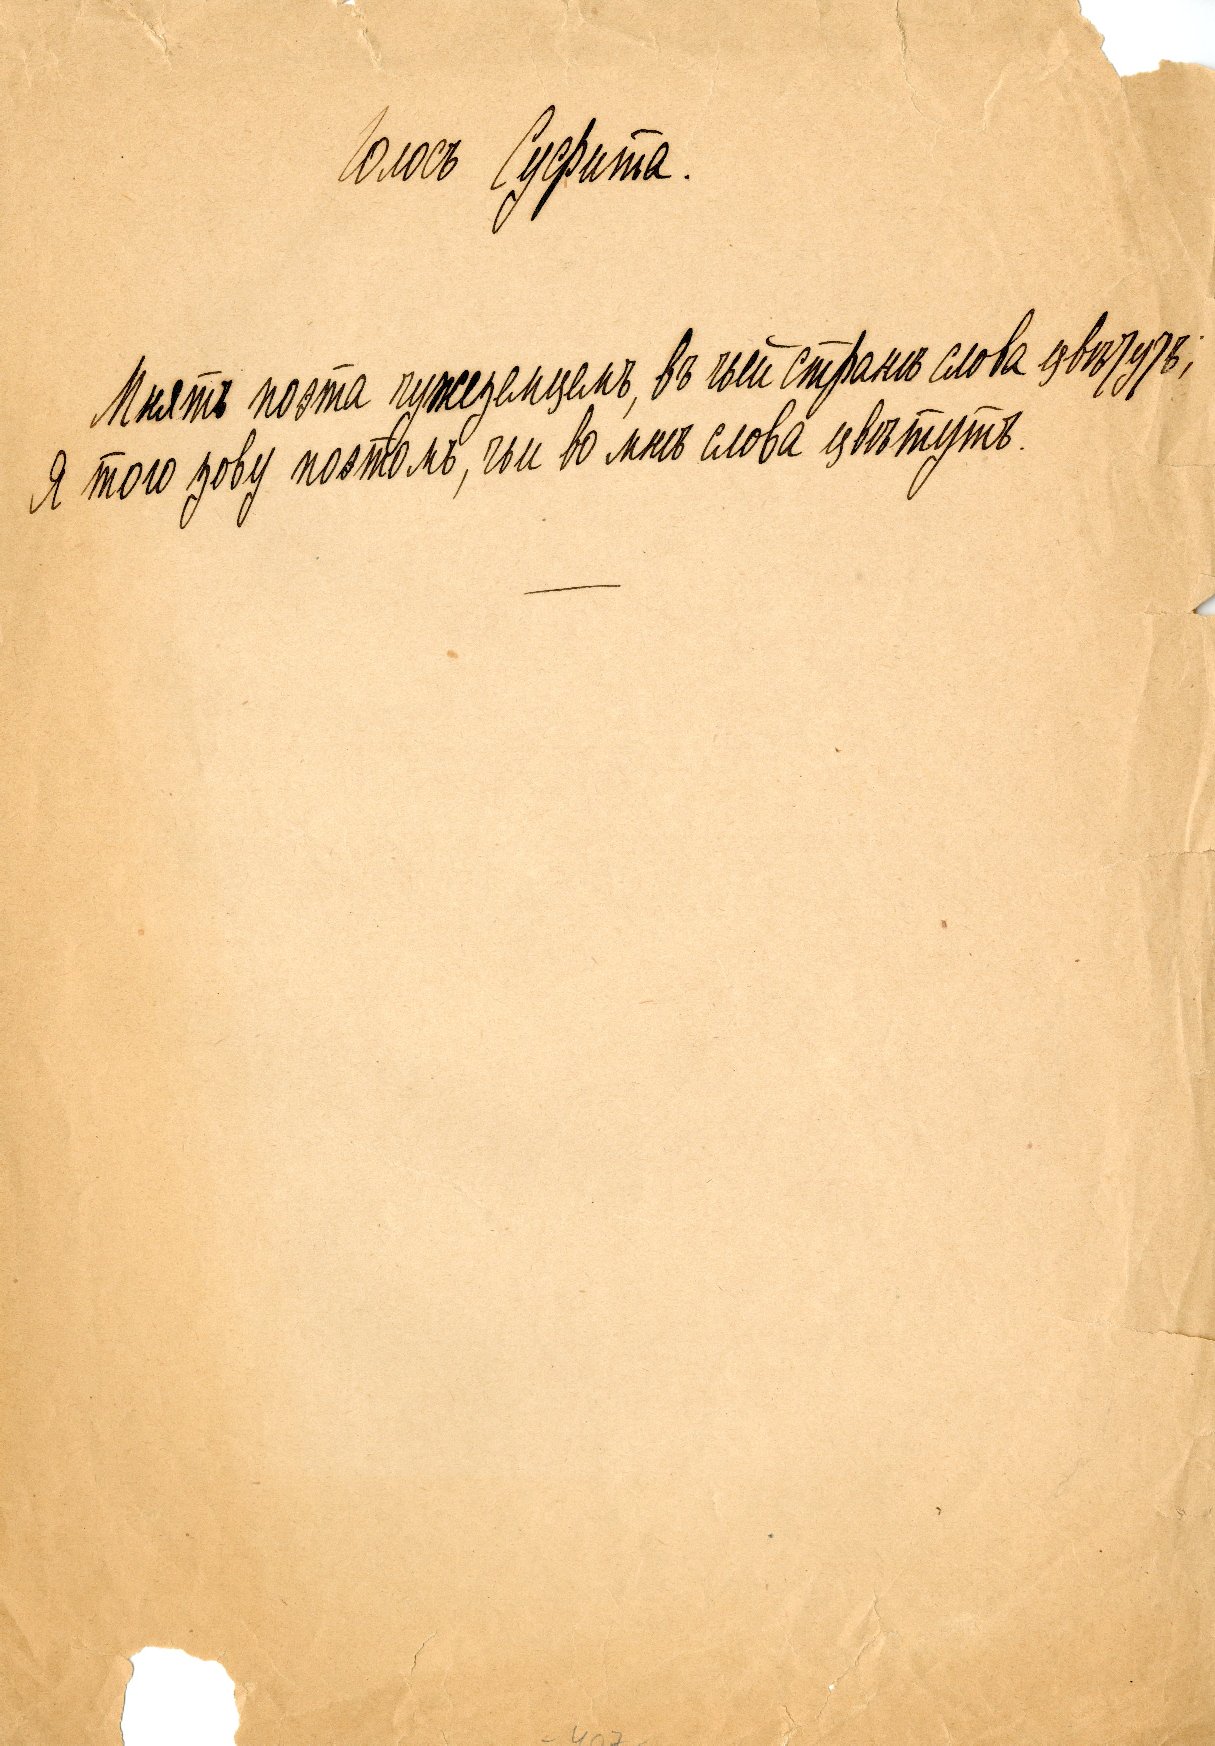 Голосъ Суфита.
Мнятъ поэта чужеземцемъ, въ чьей странѣ слова цвѣтутъ;
Я того зову поэтомъ, чьи во мнѣ слова цвѣтутъ.
- 407 -